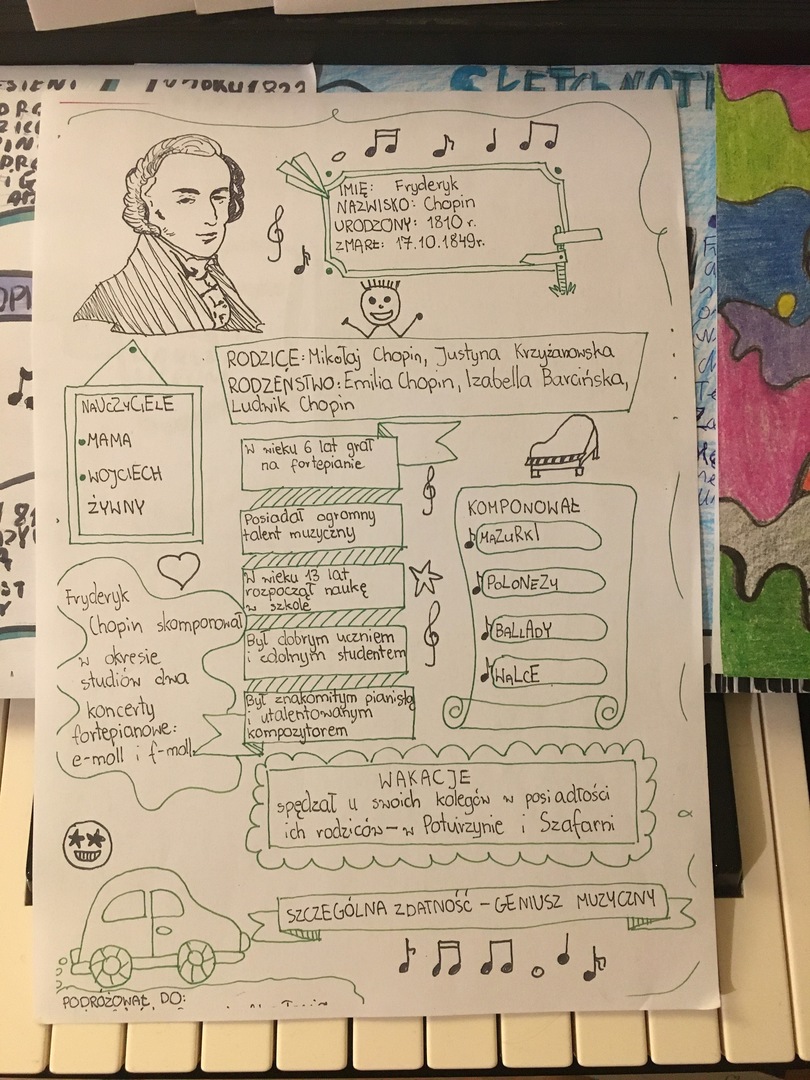 IMIĘ: Fryderyk
NAZWISKO: Chopin
URODZONY: 1810 r.
ZMARŁ: 17.10.1849r.
RODZICE: Mikołaj Chopin, Justyna Krzyżanowska
RODZEŃSTWO: Emilia Chopin, Izabella Barcińska,
Ludwik Chopin
NAUCZYCIELE
•MAMA
•WOJCIECH
ŻYWNY
W wieku 6 lat grał
na fortepianie
Posiadał ogromny
talent muzyczny
W wieku 13 lat
rozpoczął naukę
w szkole
Był dobrym uczniem
i zdolnym studentem
Był znakomitym pianistą
i utalentowanym
kompozytorem
KOMPONOWAŁ
MAZURKI
POLONEZY
BALLADY
WALCE
Fryderyk
Chopin skomponował
w okresie
studiów dwa
koncerty
fortepianowe:
e-moll i f-moll
WAKACJE
spędzał u swoich kolegów w posiadłości
ich rodziców – w Potuirzynie i Szafarni
SZCZEGÓLNA ZDATNOŚĆ – GENIUSZ MUZYCZNY
PODRÓŻOWAŁ DO: